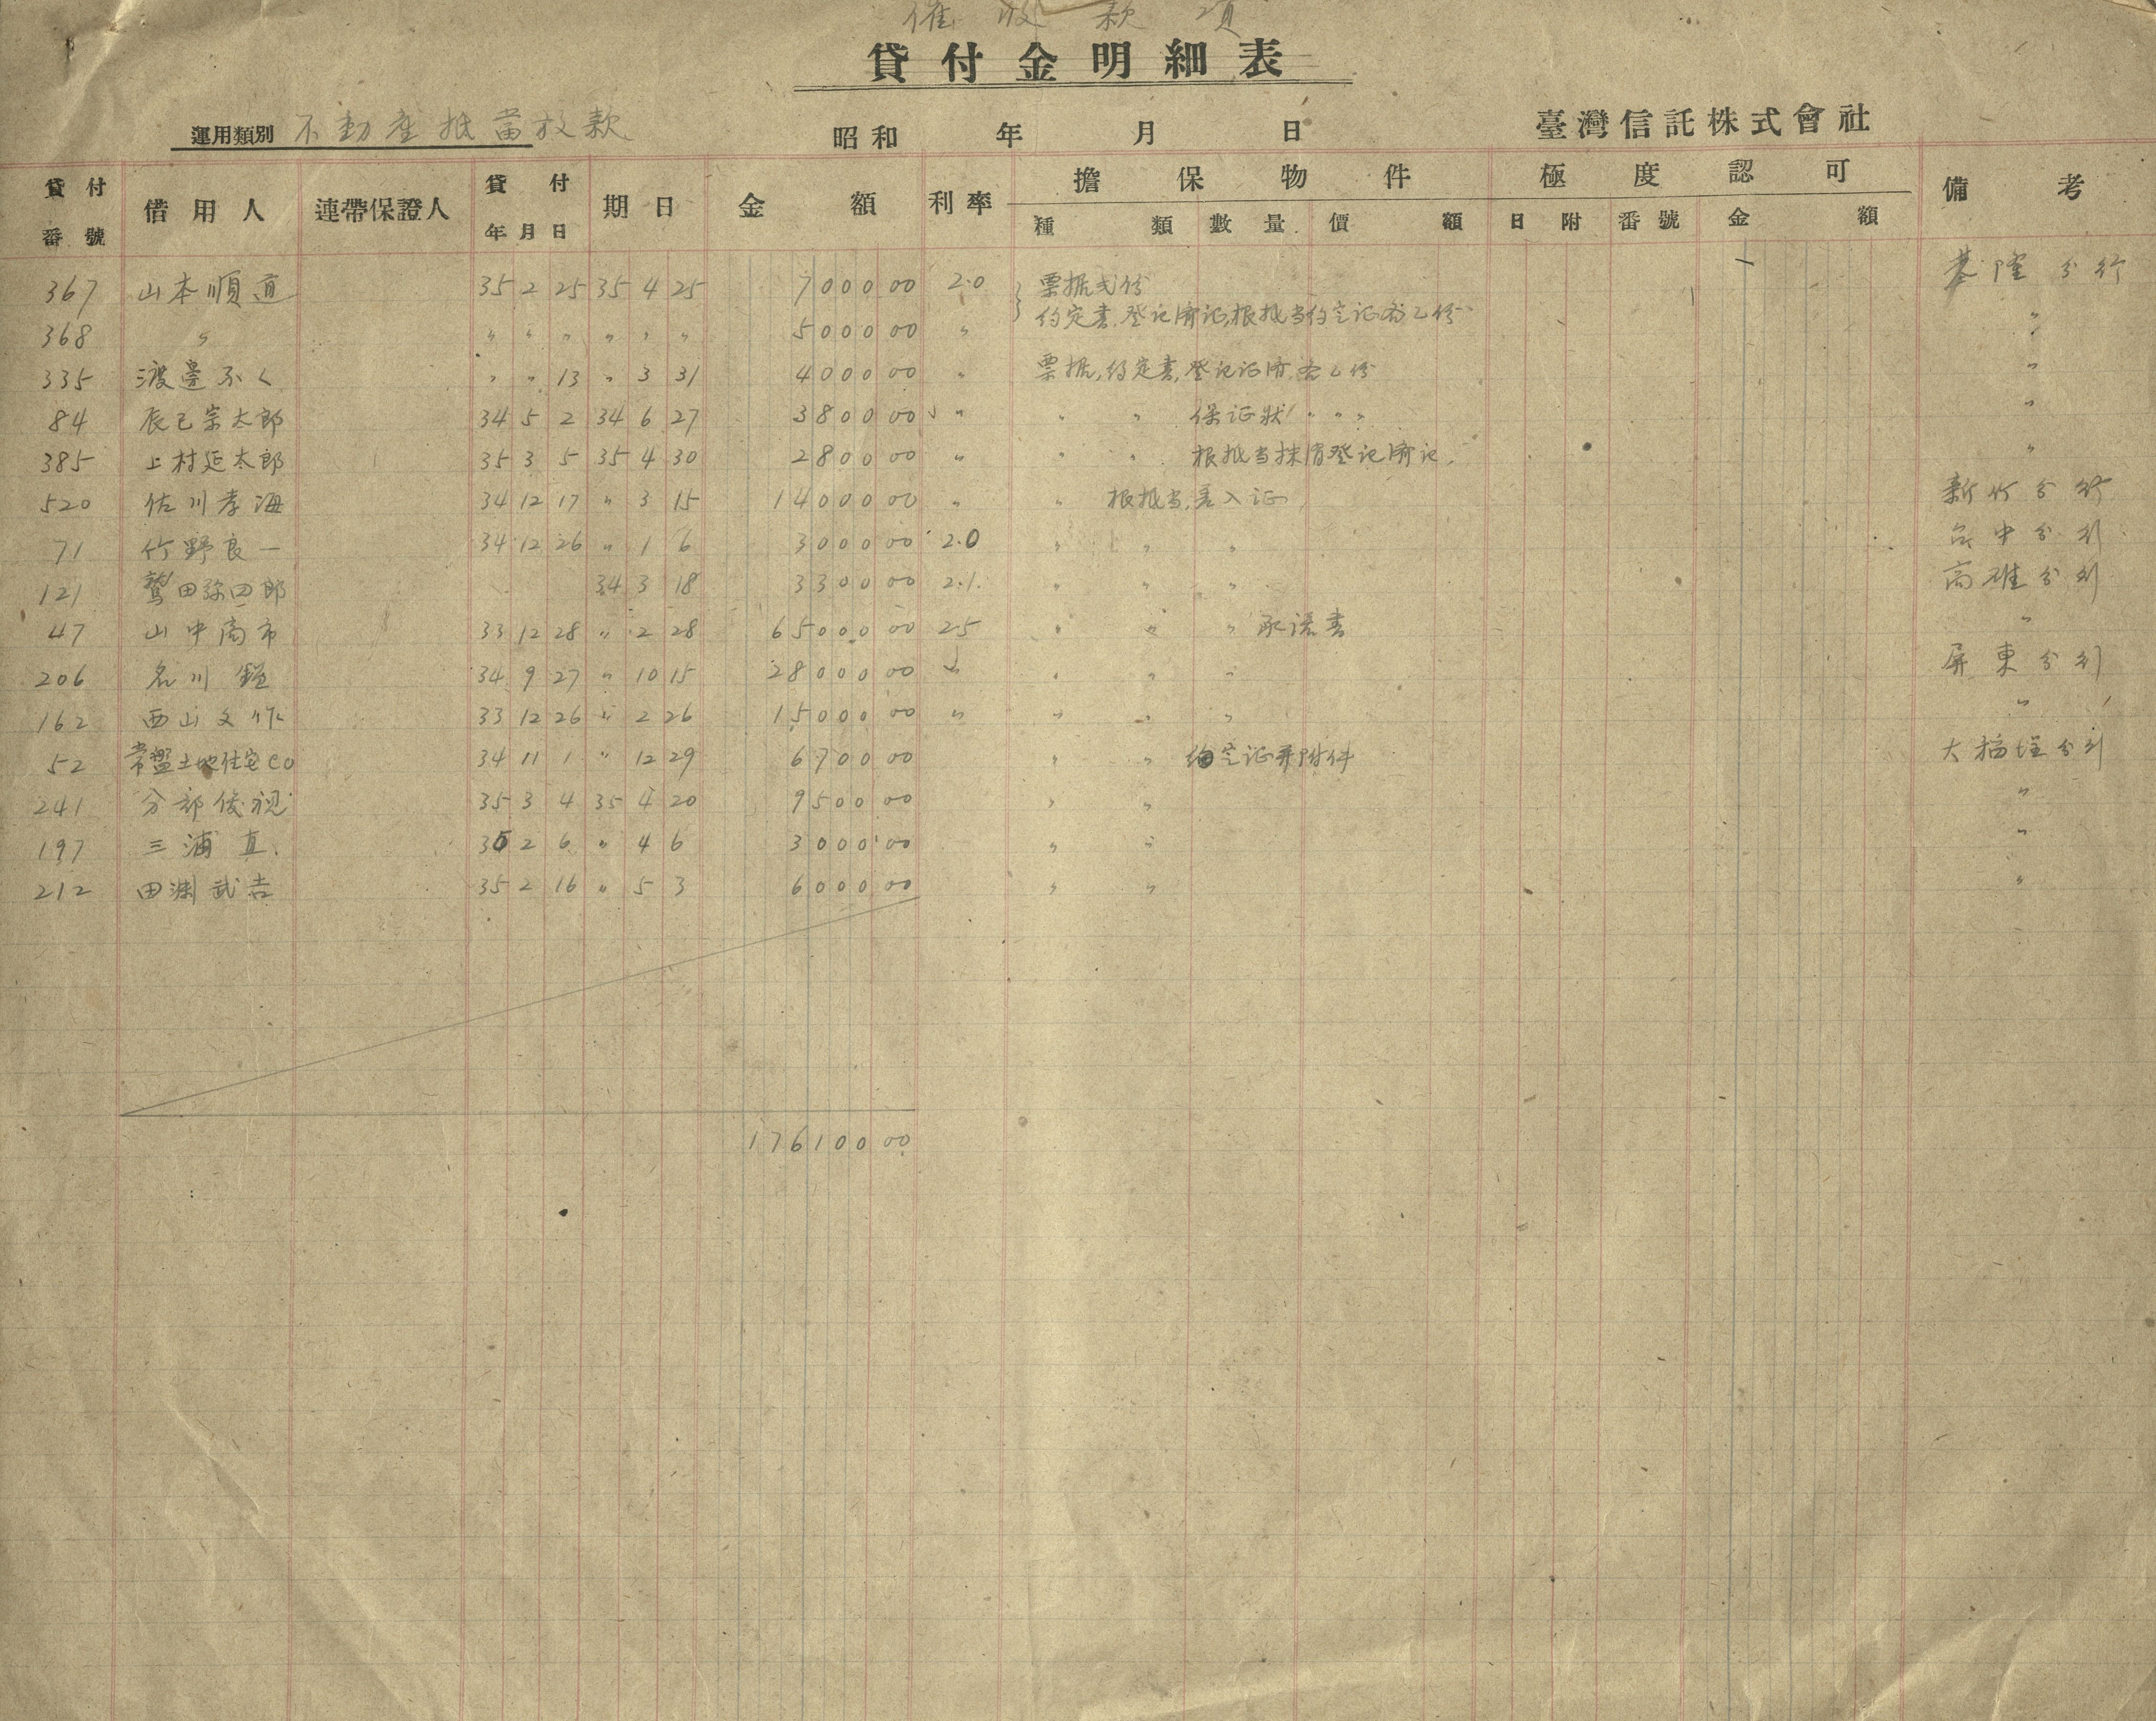 催收款項
貸付金明細表
運用類別 不動產抵當放款 昭和 年 月 日 臺灣信託株式會社
貸付番號 借用人 連帶保證人 貸付年月日 期日 金額 利率 擔保物件 極度認可 備考
種類 數量 價額 日附 番號 金額
367 山本順道 35 2 25 35 4 25 7000 00 2.0 票据弍份 基隆分行
約定書,登記濟証,根抵当約定証各乙份
368 〃 〃 〃 〃 〃 〃 〃 5000 00 〃 〃
335 渡邊ふく 〃 〃 13 〃 3 31 4000 00 〃 票据,約定書,登記証濟,各乙份 〃
84 辰已宗太郎 34 5 2 34 6 27 3800 00 〃 〃 〃 保证狀 〃 〃 〃 〃
385 上村延太郎 35 3 5 35 4 30 2800 00 〃 〃 〃 根抵当抹消登記濟証. 〃
520 佐川孝海 34 12 17 〃 3 15 14000 00 〃 〃 根抵当,差入证 新竹分行
71 竹野良一 34 12 26 〃 1 6 3000 00 2.0 〃 〃 〃 台中分行
121 鷲田弥四郎 34 3 18 3300 00 2.1. 〃 〃 〃 高雄分行
47 山中商市 33 12 28 〃 2 28 65000 00 25 〃 〃 〃 承諾書 〃
206 名川 34 9 27 〃 10 15 28000 00 〃 〃 〃 〃 屏東分行
162 西山文作 33 12 26 〃 2 26 15000 00 〃 〃 〃 〃 〃
52 常盤土地住宅co 34 11 1 〃 12 29 6700 00 〃 〃 約定証并附件 大稻埕分行
241 分部俊視 35 3 4 35 4 20 9500 00 〃 〃 〃
197 三浦真. 35 2 6 〃 4 6 3000 00 〃 〃 〃
212 田渊武吉 35 2 16 〃 5 3 6000 00 〃 〃 〃
176100 00